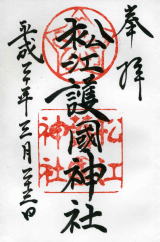 奉拝
松江護國神社
平成二年三月二十三日
松江
神社